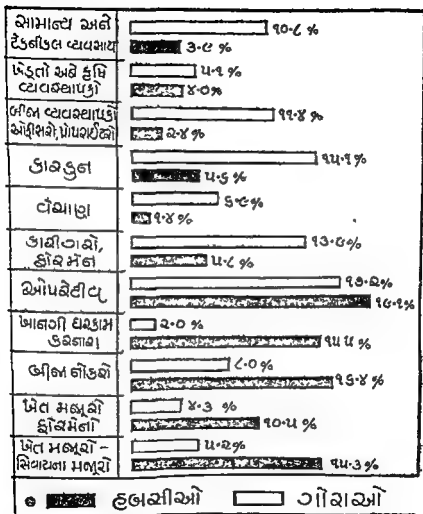 સામાન્ય અને
ટેકનીકલ વ્યવસાય
૧૦.૮ %
૩.૯ %
ખેડુતો અને કૃષિ
વ્યવસ્થાપકો
૫.૧ %
૪.૦ %
બીજા વ્યવસ્થાપકો
ઓફીસરો, પ્રોપરાઈટરો
૧૧.૪ %
૨.૪ %
કારકુન
૧૫.૧ %
૫.૬ %
વેચાણ
૬.૯ %
૧.૪ %
કારીગરો,
ફોરમેન
૧૩.૯ %
૫.૮ %
ઓપરેટીવ
૧૭.૨ %
૧૯.૧ %
ખાનગી ઘરકામ
કરનારા
૨.૦ %
૧૫૫ %
બીજા નોકરો
૮.૦ %
૧૬.૪ %
ખેત મજૂરો
ફોરમેનો
૪.૩ %
૧૦.૫ %
ખેત મજૂરો -
સિવાયના મજૂરો
૫.૨ %
૧૫.૩ %
હબસીઓ ગોરાઓ